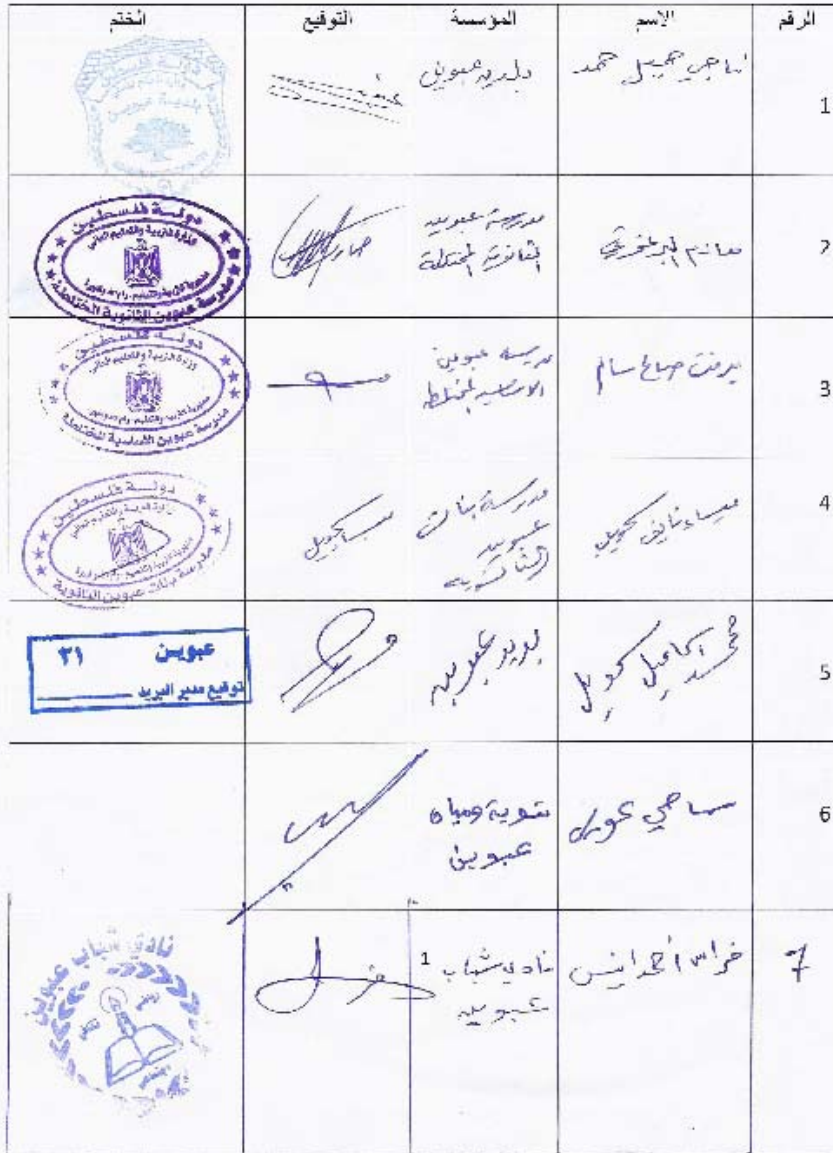 الرقم الاسم المؤسسة التوقيع الختم
1 ناجي جميل حمد بلدية عبوين
2 حازم البرغوثي مدرسة عبوين
الثانوية المختلطة
دولة فلسطين
وزارة التربية والتعليم العالي
مدرسة عبوين الثانوية المختلطة
3 ميرفت صالح سالم مدرسة عبوين
الاساسية المختلطة
دولة فلسطين
وزارة التربية والتعليم العالي
مدرسة عبوين الأساسية المختلطة
4 ميساء نايف سحويل مدرسة بنات
عبوين
الثانوية
دولة فلسطين
وزارة التربية والتعليم العالي
مدرسة بنات عبوين الثانوية
5 محمد اسماعيل سحويل بريد عبوين
عبوين ٢١
توقيع مدير البريد
6 سامحي تسوية ومياه
عبوين
7 فراس أحمد انيس نادي شباب 1
عبوين
نادي شباب عبوين